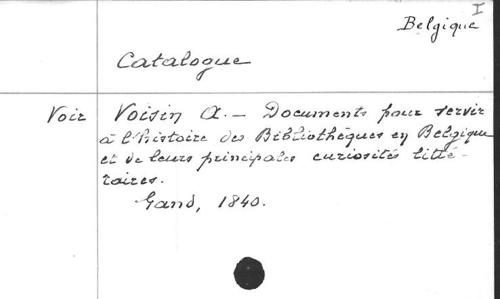 I
Belgique
Catalogue
Voir Voisin A. — Documents pour servir
à l'histoire des Bibliothèques en Belgique
et de leurs principales curiosités litté-
raires.
Gand, 1840.